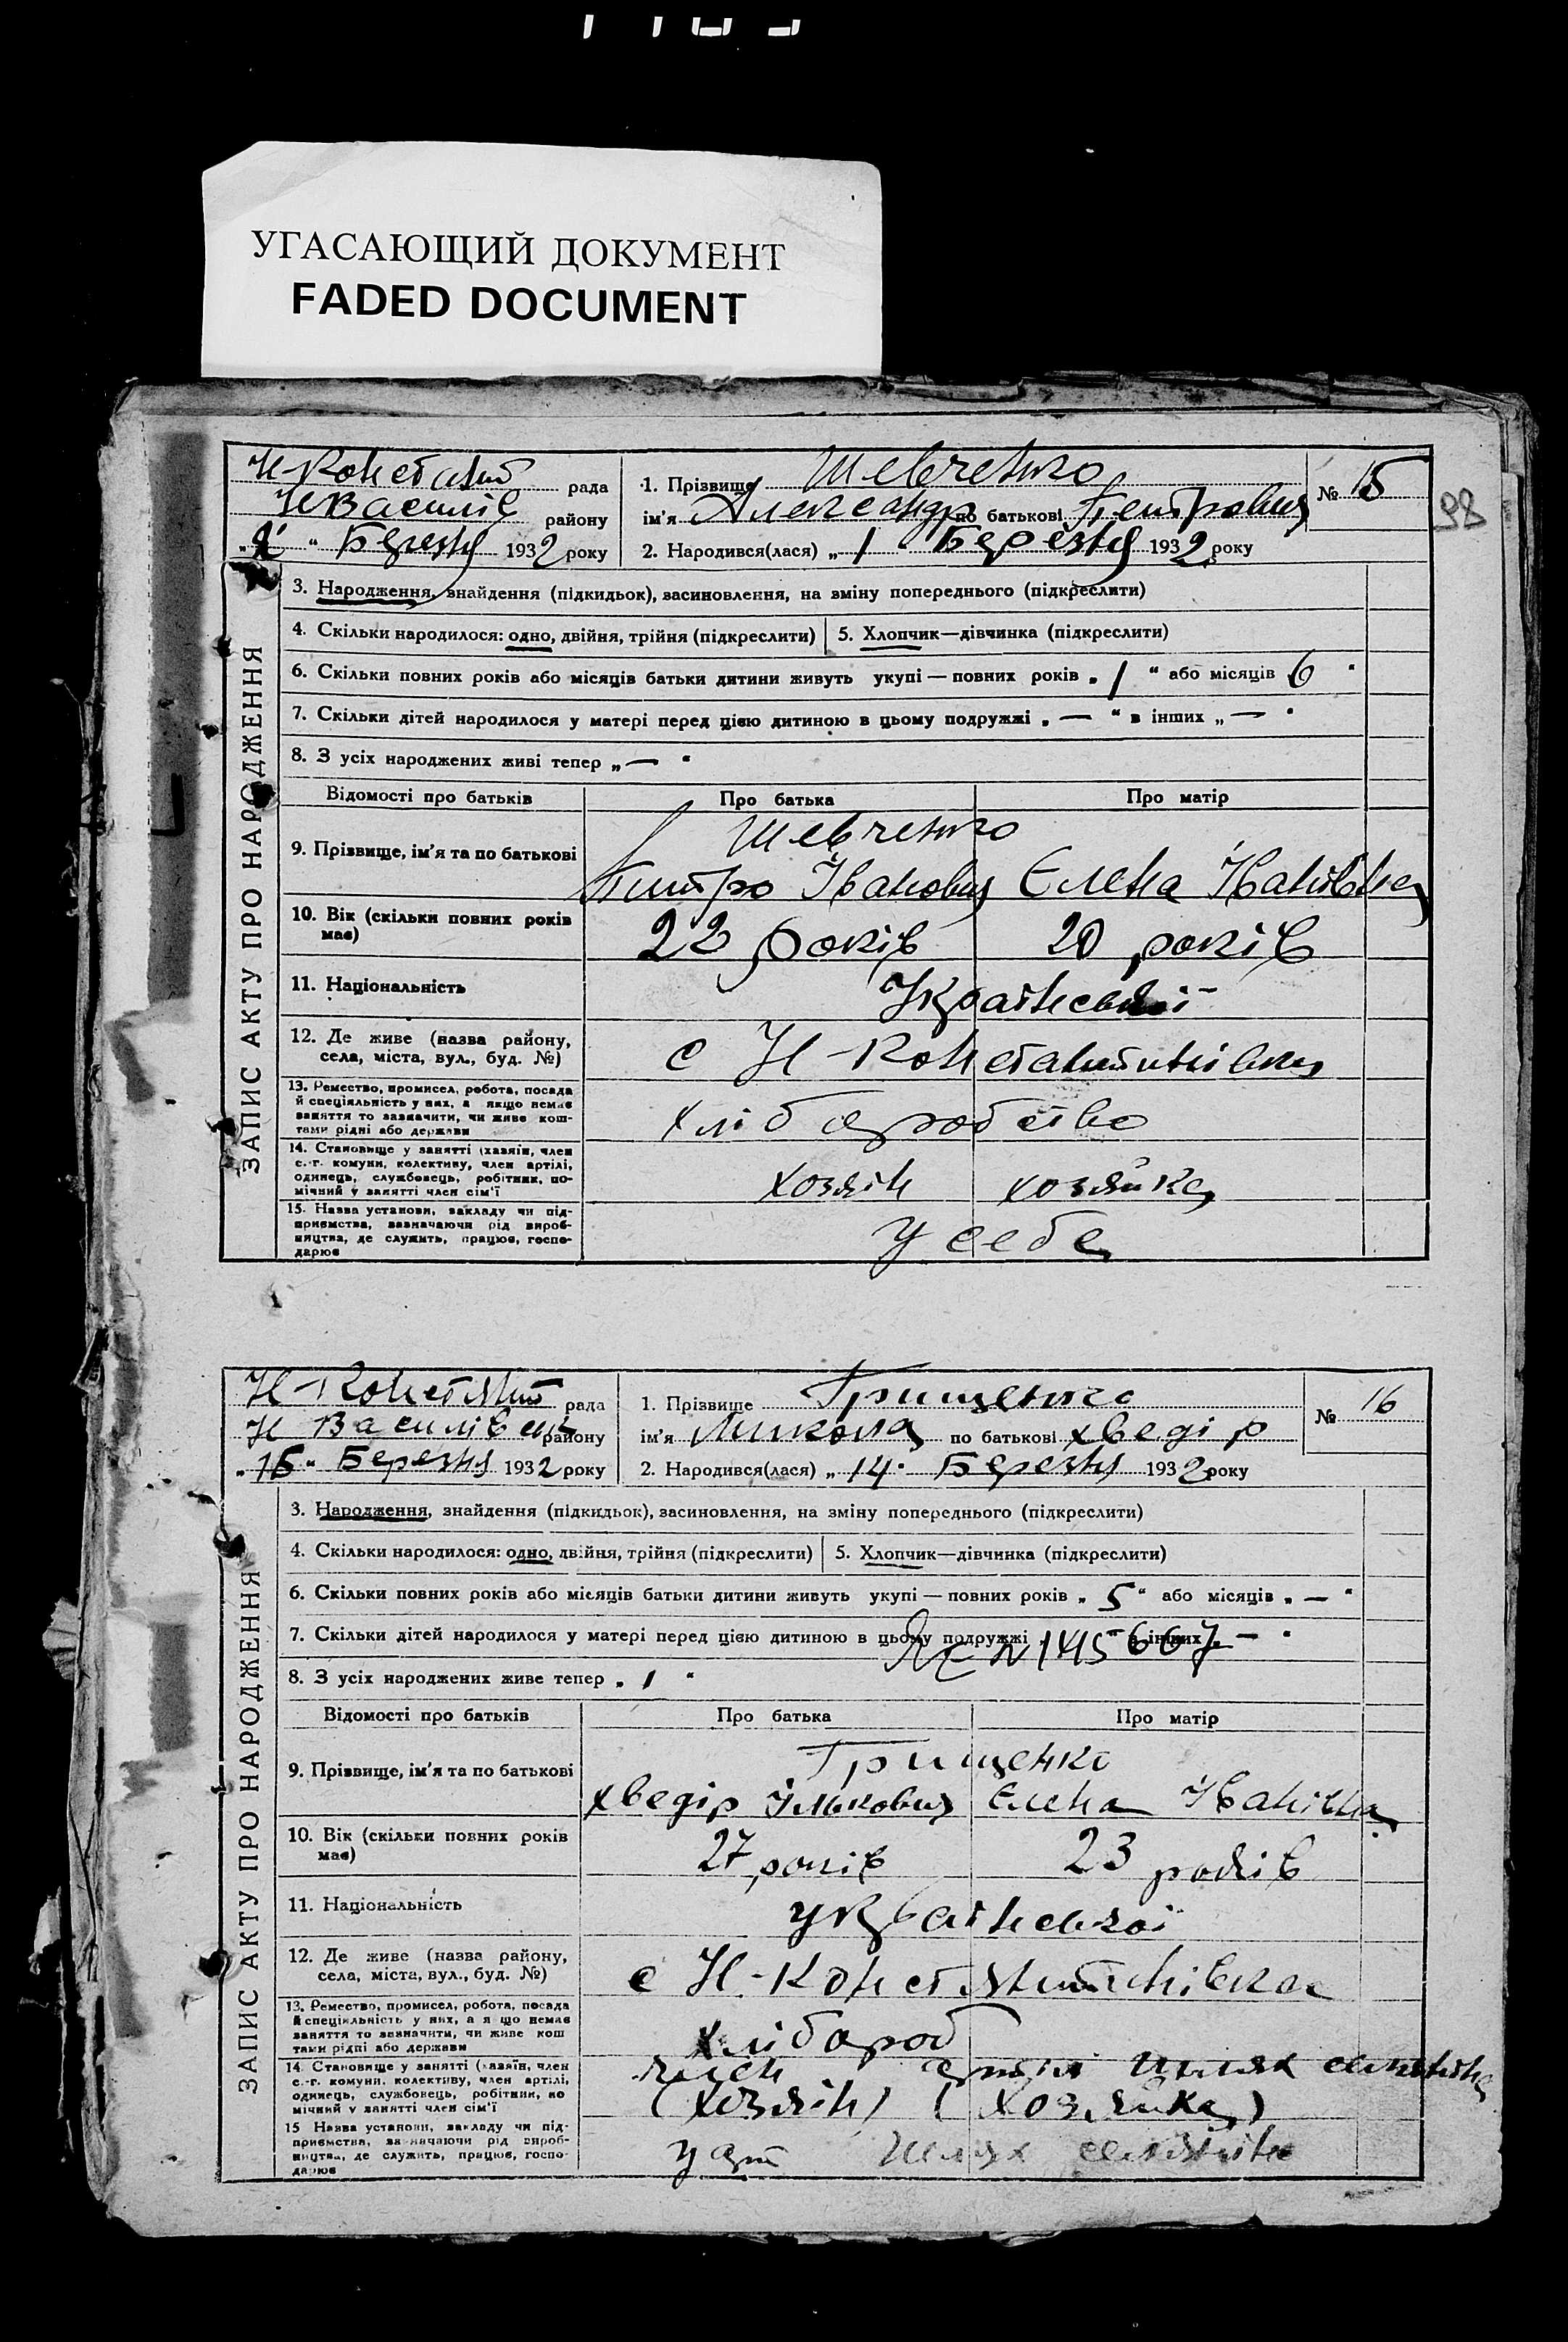 УГАСАЮЩИЙ ДОКУМЕНТ
FADED DOCUMENT
98
ЗАПИС АКТУ ПРО НАРОДЖЕННЯ
Н-Констант рада
Н Василів району
"2" Березня 1932 року
1. Прізвище Шевченко
ім'я Александр по батькові Петрович
№ 15
2. Народився(лася) „ 1 " Березня 1932 року
3. Народження, знайдення (підкидьок), засиновлення, на зміну попереднього (підкреслити)
4. Скільки народилося: одно, двійня, трійня (підкреслити) 5. Хлопчик—дівчинка (підкреслити)
6. Скільки повних років або місяців батьки дитини живуть укупі — повних років „ 1 “ або місяців 6 "
7. Скільки дітей народилося у матері перед цією дитиною в цьому подружжі „ — “ в інших „ — "
8. З усіх народжених живі тепер „ — "
Відомості про батьків Про батька Про матір
9. Прізвище, ім'я та по батькові
Шевченко
Питро Іванович Єлена Іванівна
10. Вік (скільки повних років має) 22 років 20 років
11. Національність Української
12. Де живе (назва району, села, міста, вул., буд. №) с Н-Константинівка
13. Ремество, промисел, робота, посада
й спеціяльність у них, а якщо немає
заняття то зазначити, чи живе кош-
тами рідні або держави
хліборобство
14. Становище у занятті (хазяїн, член
с.-г. комуни, колективу, член артілі,
одинець, службовець, робітник, по-
мічний у занятті член сім'ї
хозяін хозяйка
15. Назва установи, закладу чи під-
приємства, зазначаючи рід вироб-
ництва, де служить, працює, госпо-
дарює
у себе
ЗАПИС АКТУ ПРО НАРОДЖЕННЯ
Н-Констянт рада
Н Василівськ району
"16" Березня 1932 року
1. Прізвище Грищенко
ім'я Микола по батькові Хведір
№ 16
2. Народився(лася) „ 14 " Березня 1932 року
3. Народження, знайдення (підкидьок), засиновлення, на зміну попереднього (підкреслити)
4. Скільки народилося: одно, двійня, трійня (підкреслити) 5. Хлопчик—дівчинка (підкреслити)
6. Скільки повних років або місяців батьки дитини живуть укупі — повних років „ 5 “ або місяців „ — "
7. Скільки дітей народилося у матері перед цією дитиною в цьому подружжі в інших „ — "
N 145667
8. З усіх народжених живе тепер „ 1 "
Відомості про батьків Про батька Про матір
9. Прізвище, ім'я та по батькові
Грищенко
Хведір Ількович Єлена Іванівна
10. Вік (скільки повних років має) 27 років 23 років
11. Національність Української
12. Де живе (назва району, села, міста, вул., буд. №) с Н-Констянтинівка
13. Ремество, промисел, робота, посада
й спеціяльність у них, а якщо немає
заняття то зазначити, чи живе кош
тами рідні або держави
хлібороб
14. Становище у занятті (хазяїн, член
с.-г. комуни, колективу, член артілі,
одинець, службовець, робітник, по
мічний у занятті член сім'ї
член артілі Шлях селянина
(хозяін) (хозяйка)
15 Назва установи, закладу чи під-
приємства, зазначаючи рід вироб-
ництва, де служить, працює, госпо-
дарює
у арт Шлях селянина